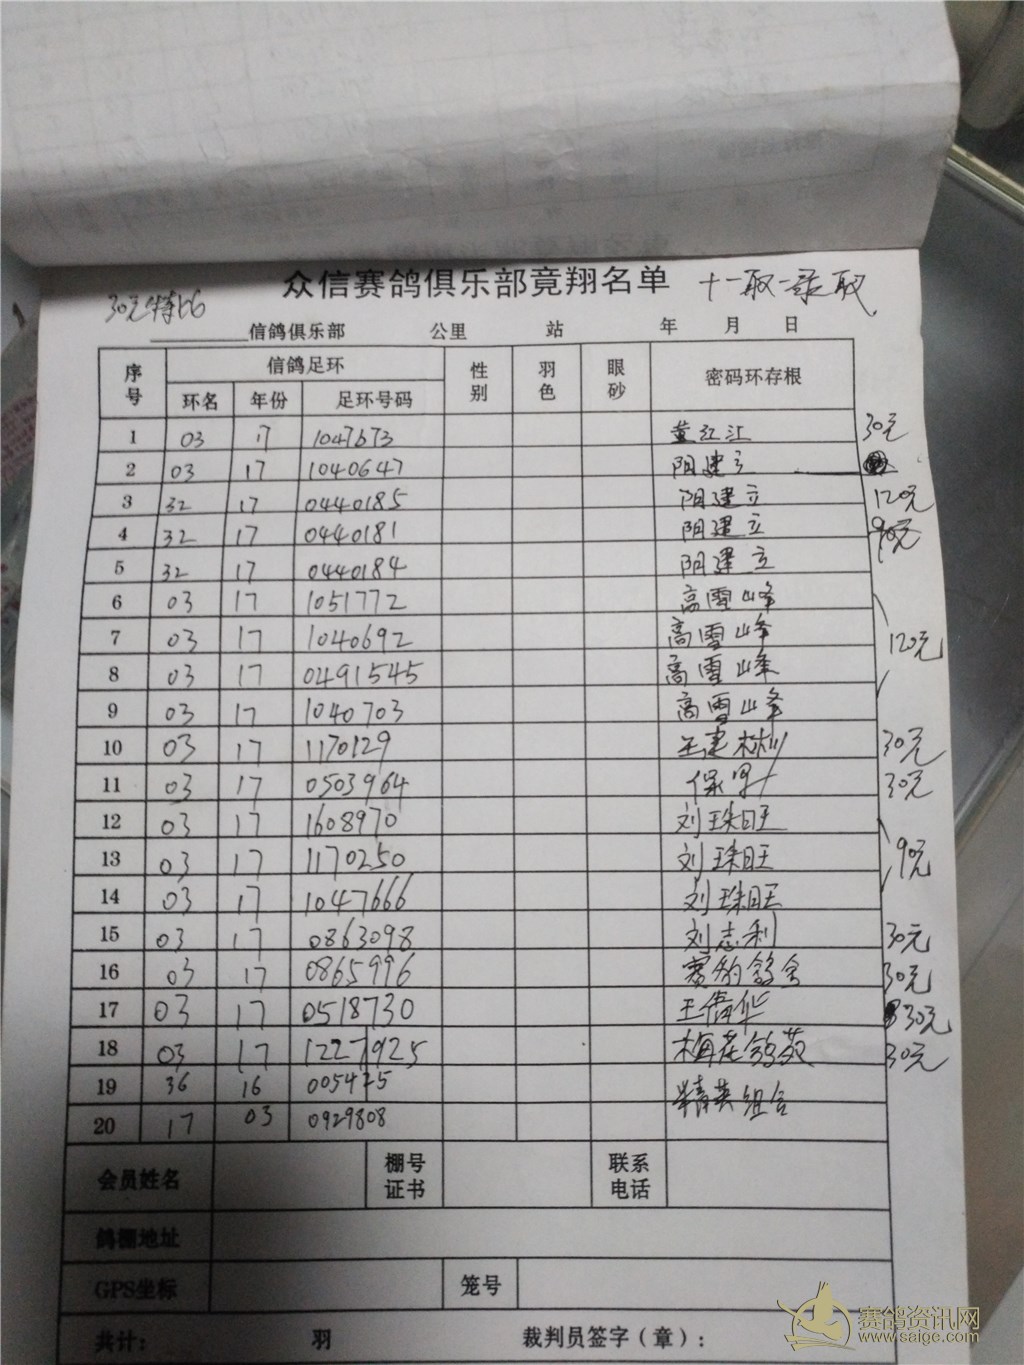 众信赛鸽俱乐部竞翔名单 十一取一录取
30元特比
信鸽俱乐部 公里 站 年 月 日
序号 信鸽足环 性别 羽色 眼砂 密码环存根
环名 年份 足环号码
1 03 17 1047673 黄红江 30元
2 03 17 1040647 阳建立
3 32 17 0440185 阳建立 120元
4 32 17 0440181 阳建立 90元
5 32 17 0440184 阳建立
6 03 17 1051772 高雪峰
7 03 17 1040692 高雪峰 120元
8 03 17 0491545 高雪峰
9 03 17 1040703 高雪峰
10 03 17 1170129 王建彬 30元
11 03 17 0503964 30元
12 03 17 1608970 刘珠旺
13 03 17 1170250 刘珠旺 90元
14 03 17 1047666 刘珠旺
15 03 17 0863098 刘志利 30元
16 03 17 0865996 赛豹鸽舍 30元
17 03 17 0518730 王倩华 30元
18 03 17 1227925 梅花鸽苑 30元
19 36 16 005425 精英组合
20 17 03 0929808
会员姓名 棚号证书 联系电话
鸽棚地址
GPS坐标 笼号
共计: 羽 裁判员签字(章):
赛鸽资讯网
www.saige.com